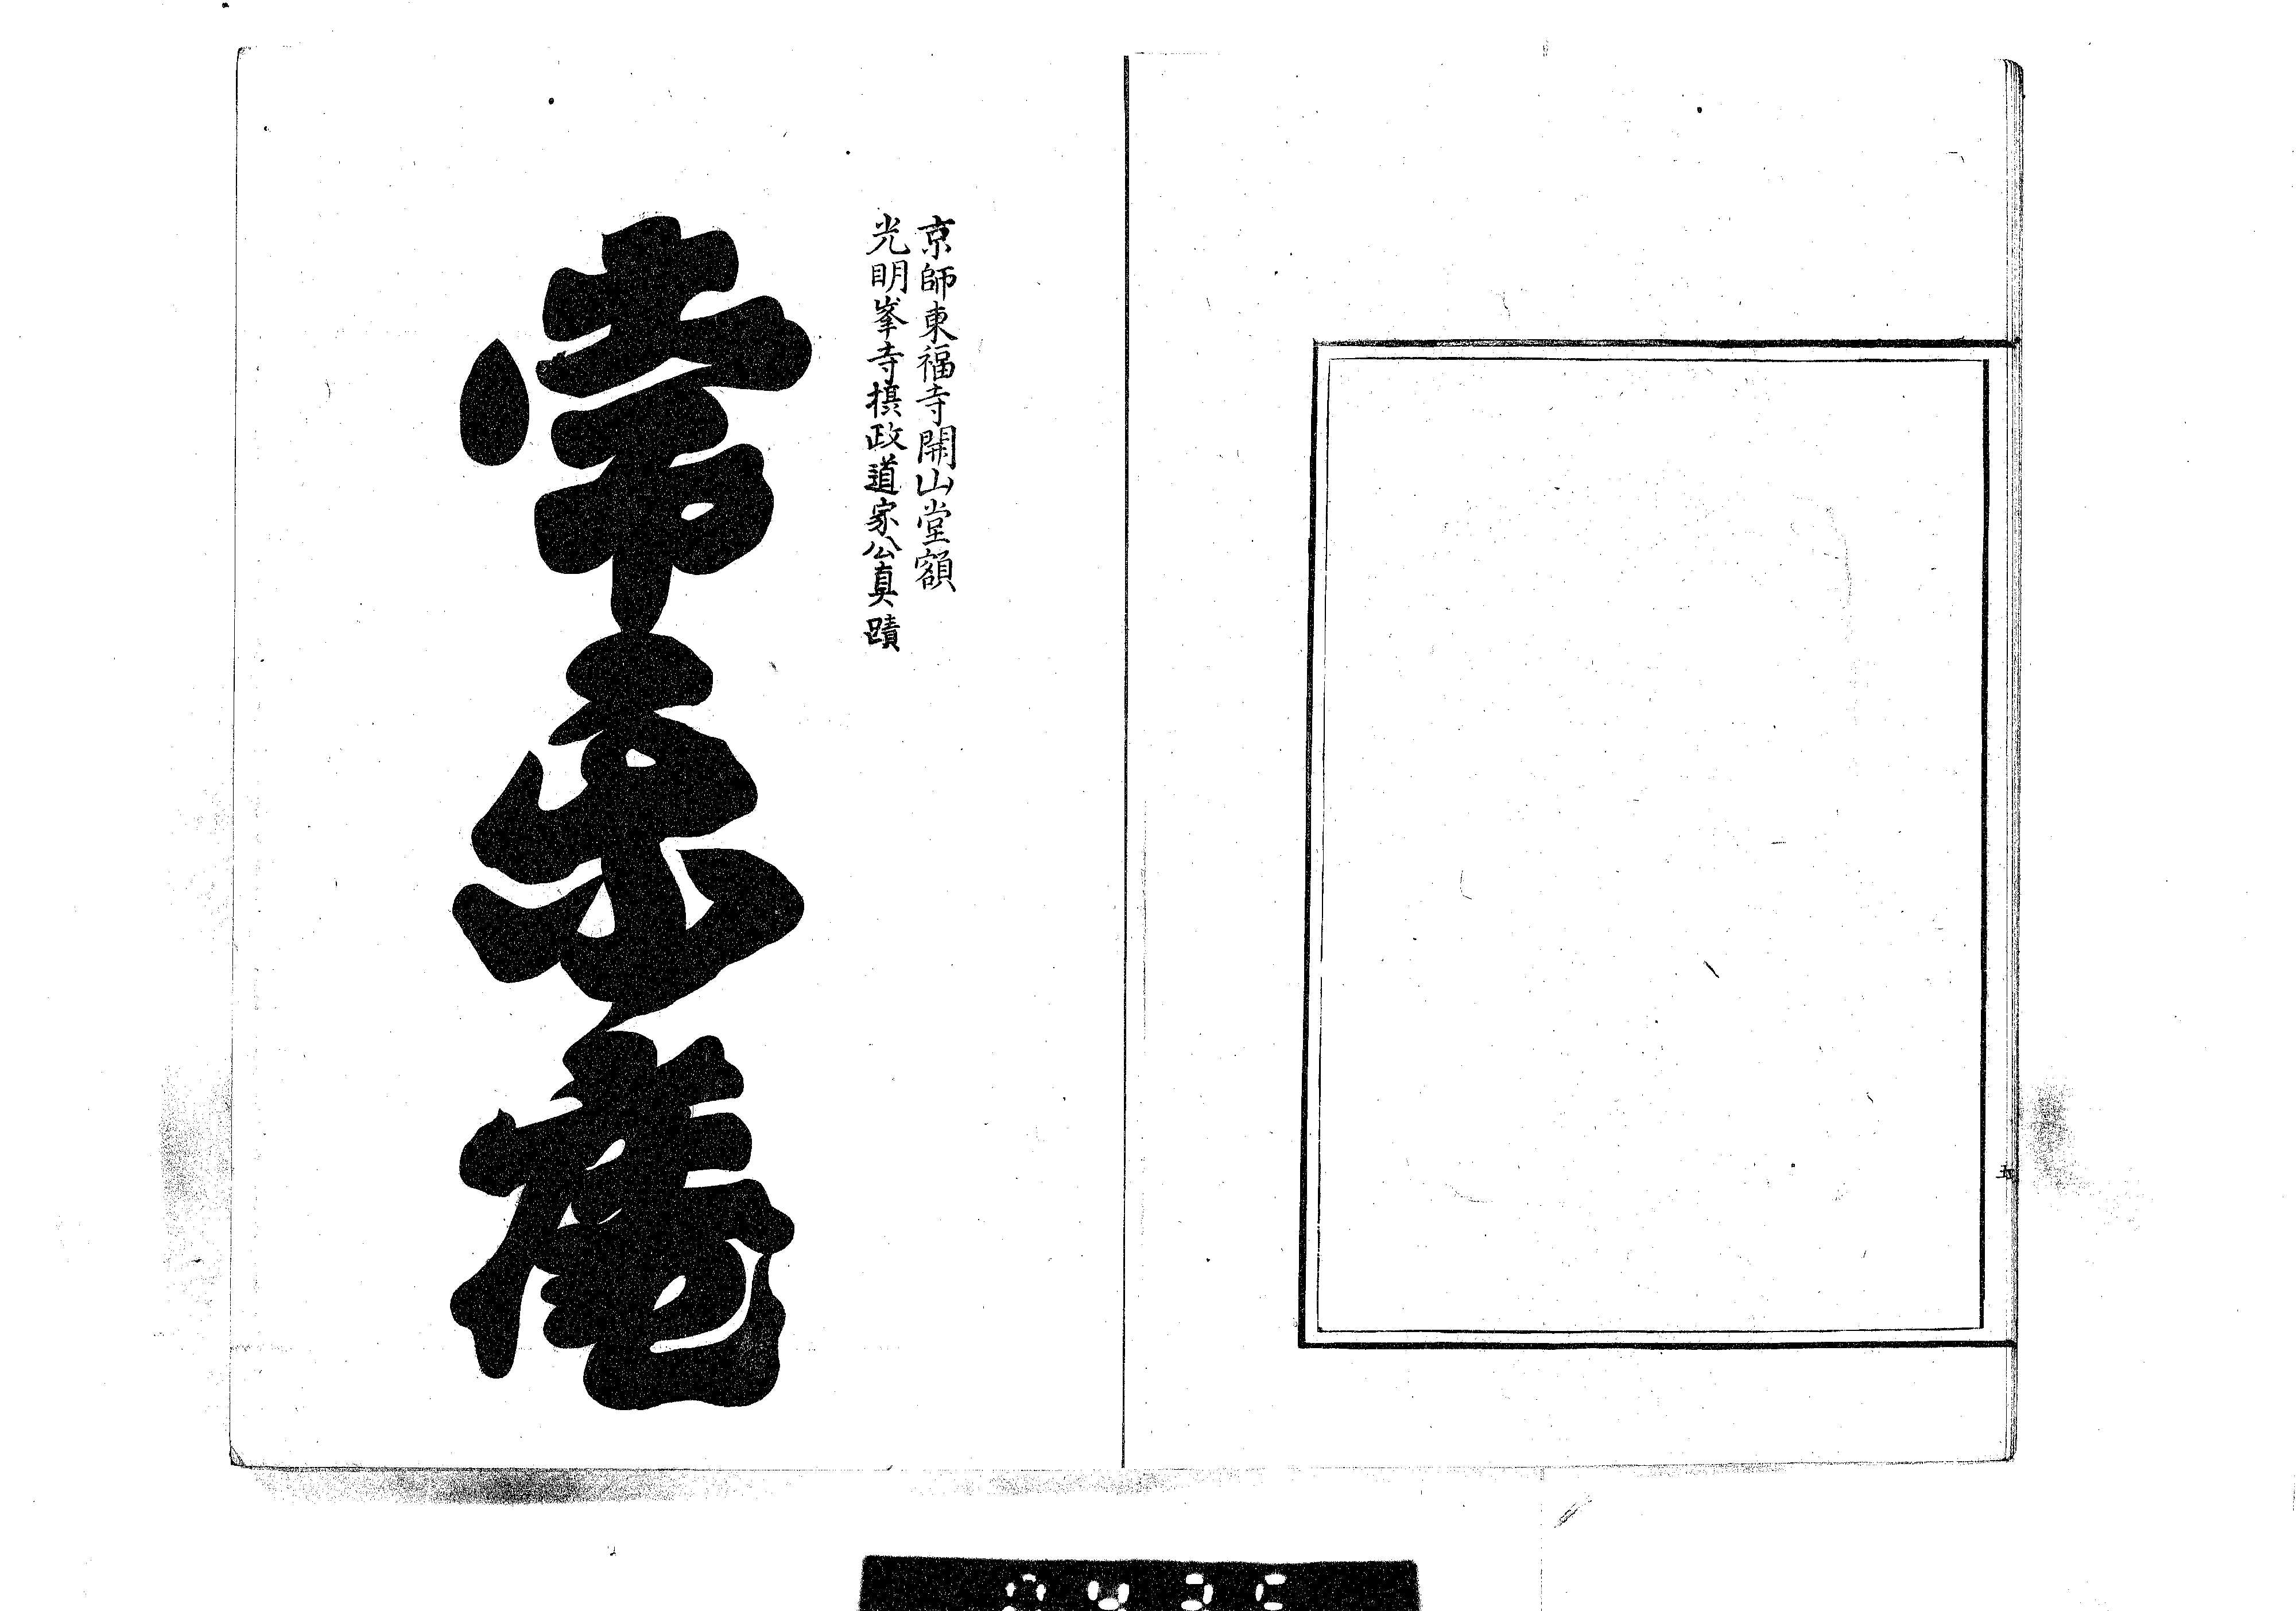 京師東福寺開山堂額
光明峯寺摂政道家公真蹟
常樂庵
五